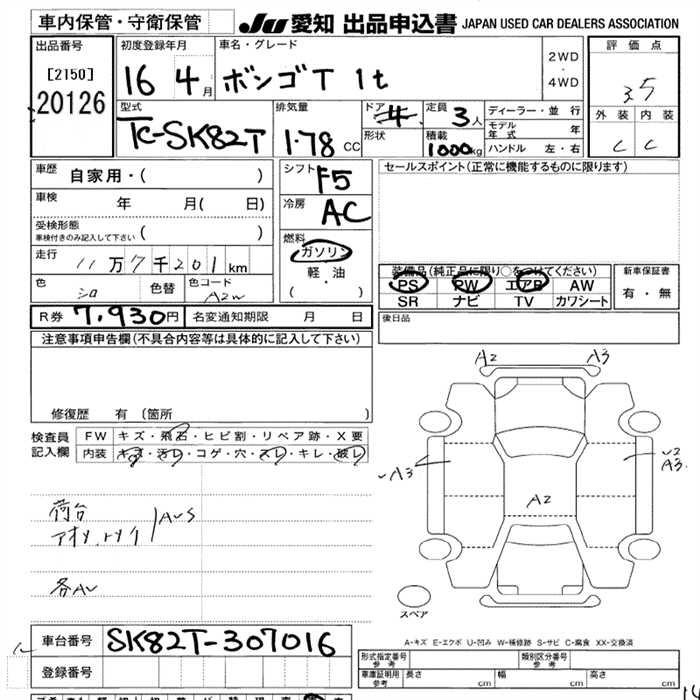 車内保管・守衛保管
JU 愛知 出品申込書 JAPAN USED CAR DEALERS ASSOCIATION
出品番号
[2150]
20126
初度登録年月
16 4月
車名・グレード
ボンゴT 1t
2WD
・
4WD
評価点
3.5
外装 内装
C C
型式
TC-SK82T
排気量
1.78 CC
ドア
形状
定員
3人
積載
1000kg
ディーラー・並行
モデル年式 年
ハンドル 左・右
車歴
自家用・( )
車検
年 月( 日)
受検形態
車検付きのみ記入して下さい ( )
走行
11万7千201km
色
シロ
色替
色コード
A2W
シフト
F5
冷房
AC
燃料
ガソリン
軽・油
( ・ )
セールスポイント(正常に機能するものに限ります)
装備品(純正品に限り○をつけてください)
PS PW エアB AW
SR ナビ TV カワシート
新車保証書
有・無
R券 7,930円
名変通知期限 月 日
後日品
注意事項申告欄(不具合内容等は具体的に記入して下さい)
修復歴 有 (箇所 )
検査員
記入欄
FW キズ・飛石・ヒビ割・リペア跡・X要
内装 キズ・汚レ・コゲ・穴・スレ・キレ・破レ
荷台
アオリ、トノイ
AUS
各AU
A2
A3
A3
U2
A3
A2
スペア
A-キズ E-エクボ U-凹み W-補修跡 S-サビ C-腐食 XX-交換済
車台番号
SK82T-307016
登録番号
形式指定番号
参考
類別区分番号
参考
車庫証明用
参考
長さ cm
幅 cm
高さ cm